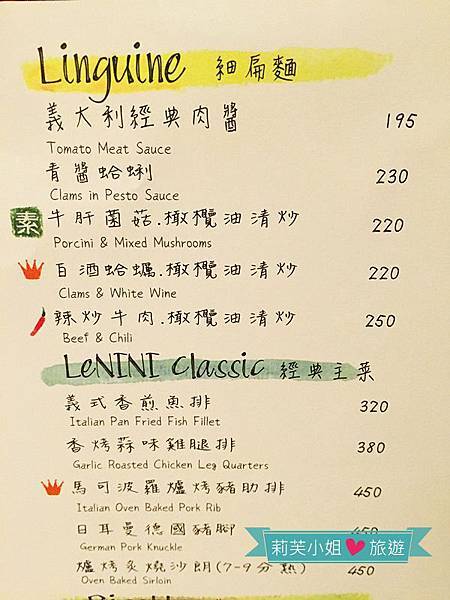 Linguine 細扁麵
義大利經典肉醬 195
Tomato Meat Sauce
青醬蛤蜊 230
Clams in Pesto Sauce
素 牛肝菌菇.橄欖油清炒 220
Porcini & Mixed Mushrooms
白酒蛤蠣.橄欖油清炒 220
Clams & White Wine
辣炒牛肉.橄欖油清炒 250
Beef & Chili
LeNINI Classic 經典主菜
義式香煎魚排 320
Italian Pan Fried Fish Fillet
香烤蒜味雞腿排 380
Garlic Roasted Chicken Leg Quarters
馬可波羅爐烤豬肋排 450
Italian Oven Baked Pork Rib
日耳曼德國豬腳 450
German Pork Knuckle
爐烤炙燒沙朗(7-9分熟) 450
Oven Baked Sirloin
莉芙小姐❤旅遊